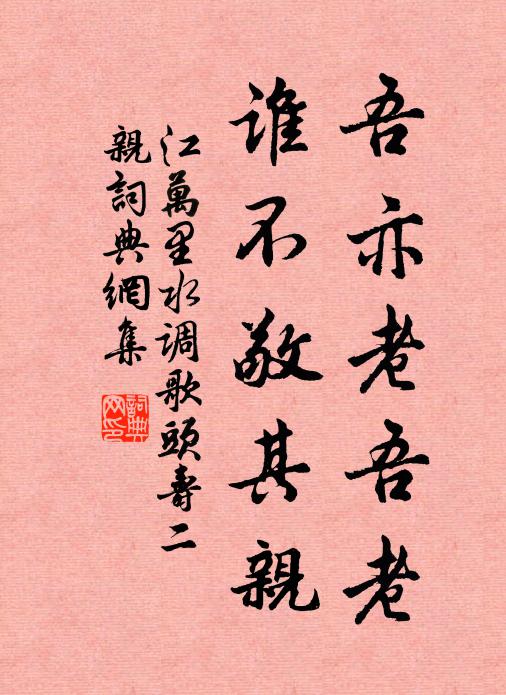 吾亦老吾老
谁不敬其親
江萬里水调歌頭壽二
親詞典網集
詞典网印